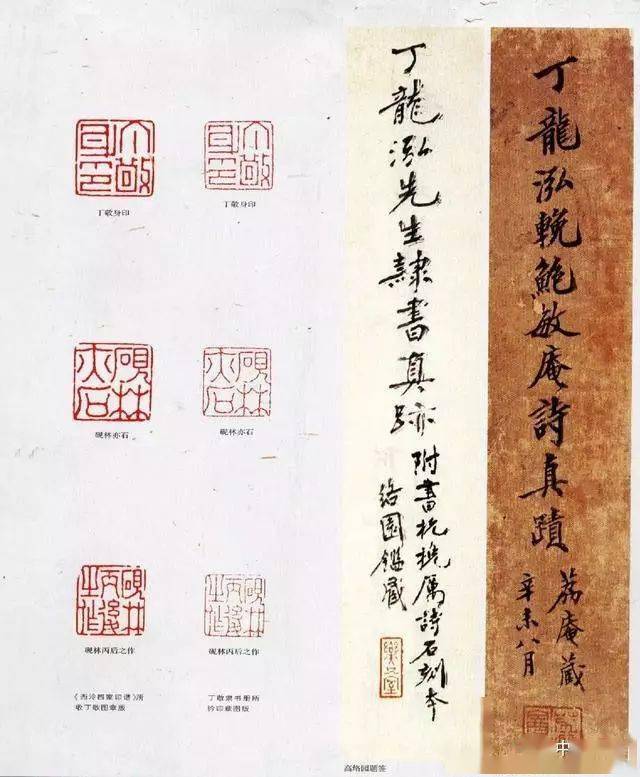 丁龍泓輓鮑敏庵詩真蹟
荔庵藏
辛未八月
丁龍泓先生隸書真跡
附書杭樊厲詩石刻本
絡園鑑藏
丁敬身印
丁敬身印
砚林亦石
砚林亦石
砚林丙后之作
砚林丙后之作
《西泠四家印谱》所
收丁敬图章版
丁敬隶书册所
钤印章图版
高络园题签
中